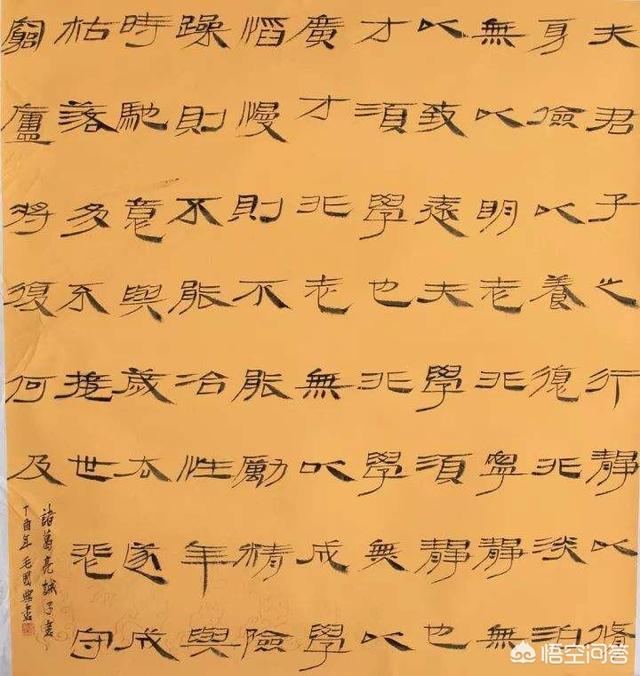 夫君子之行靜以脩
身儉以養德非淡泊
無以明志非寧靜無
以致遠夫學須靜也
才須學也非學無以
廣才非志無以成學
慆慢則不能勵精險
躁則不能冶性年與
時馳意與歲去遂成
枯落多不接世悲守
窮廬將復何及
諸葛亮誡子書
丁酉年毛國典書
悟空问答